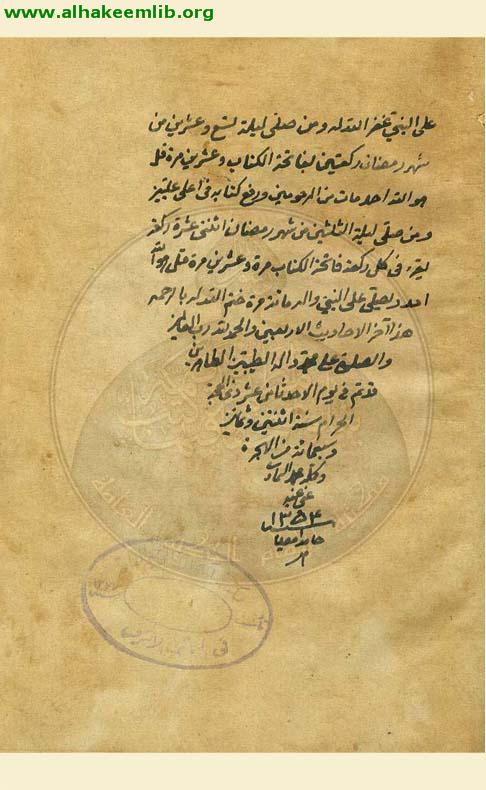 www.alhakeemlib.org
على النبي غفر الله له ومن صلى ليلة تسع وعشرين من
شهر رمضان ركعتين بفاتحة الكتاب وعشرين مرة قل
هو الله احد مات من المرحومين ورفع كتابه في اعلى عليين
ومن صلى ليلة الثلثين من شهر رمضان اثنتى عشرة ركعة
يقرء في كل ركعة فاتحة الكتاب مرة وعشرين مرة قل هو الله
احد ويصلى على النبي واله مائة مرة ختم الله له بالرحمة
هذا آخر الاحاديث الاربعين والحمد لله رب العالمين
والصلوة على محمد واله الطيبين الطاهرين
قد تم في يوم الاحد ثامن عشر ذي الحجة
الحرام سنة اثنتين وثمانين
وسبعمائة من الهجرة
عفى عنه
١٣٥٤